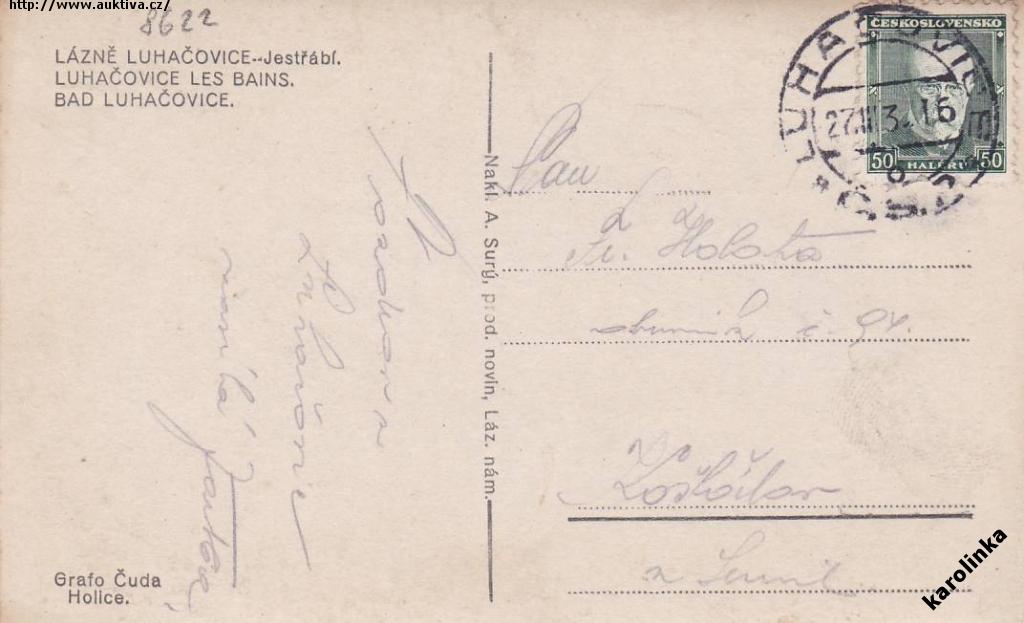 http://www.auktiva.cz/
8622
LÁZNĚ LUHAČOVICE--Jestřábí.
LUHAČOVICE LES BAINS.
BAD LUHAČOVICE.
Pozdrav z
Luhačovic
Nakl. A. Surý, prod. novin, Láz. nám.
Grafo Čuda
Holice.
ČESKOSLOVENSKO
50 HALÉŘŮ 50
LUHAČOVICE
Č.S.
27.
16
Pan
Fr.
obuvník č. 94.
Košťálov
karolinka